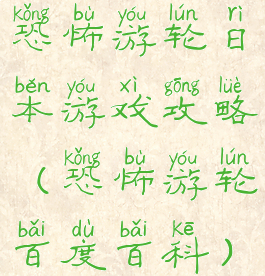 kǒng bù yóu lún rì
恐怖游轮日
běn yóu xì gōng lüè
本游戏攻略
kǒng bù yóu lún
(恐怖游轮
bǎi dù bǎi kē
百度百科)